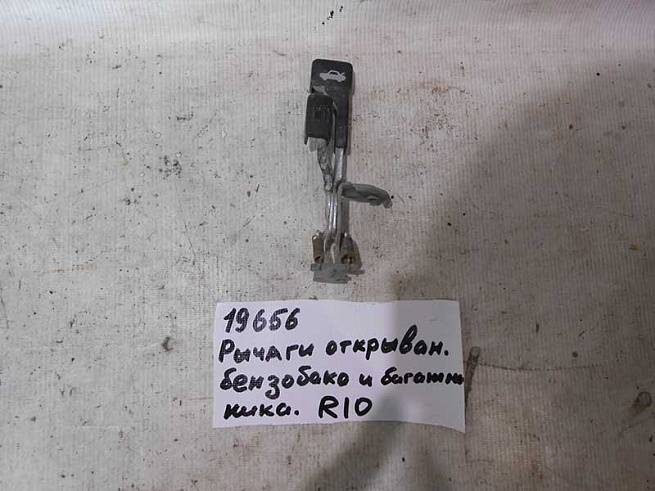 19656
Рычаги открыван.
бензобако и багажни
ника. RIO